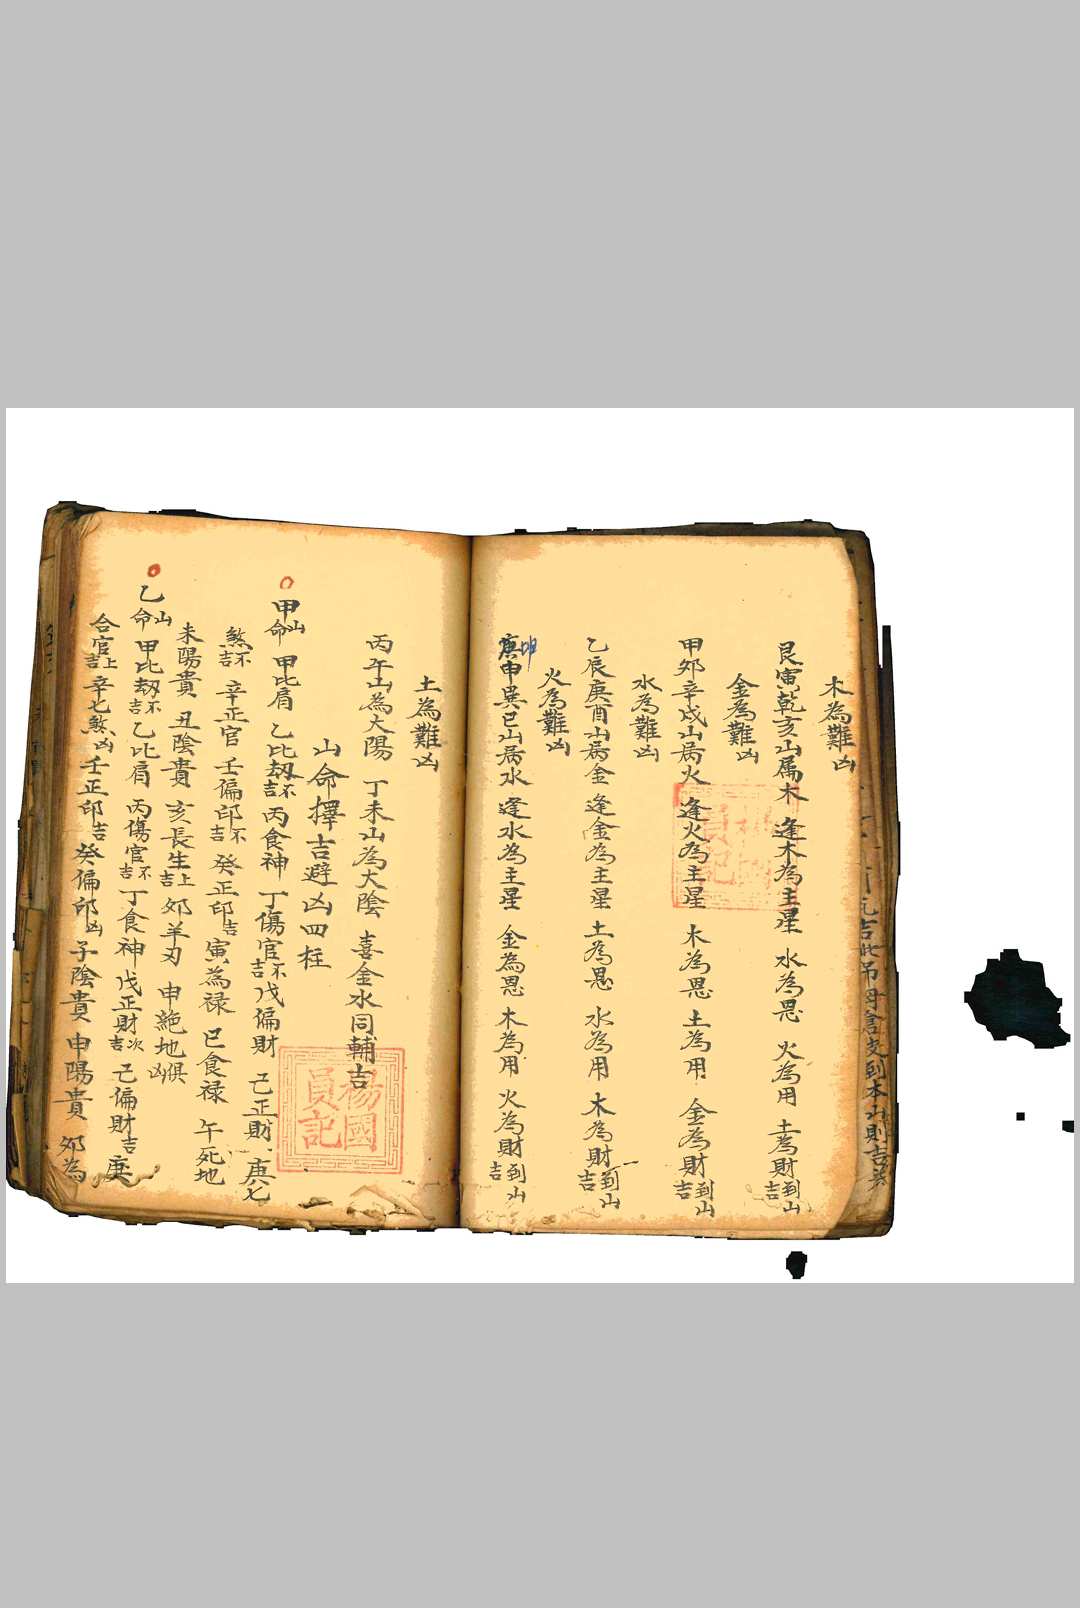 木為難凶
艮寅乾亥山属木 逢木為主星 水為恩 火為用 土為財到山吉
金為難凶
甲夘辛戌山属火 逢火為主星 木為恩 土為用 金為財到山吉
水為難凶
乙辰庚酉山属金 逢金為主星 土為恩 水為用 木為財到山吉
火為難凶
庚坤申巽巳山属水 逢水為主星 金為恩 木為用 火為財到山吉
土為難凶
丙午山為大陽 丁未山為大陰 喜金水同輔吉
山命擇吉避凶四柱
甲山命 甲比肩 乙比刼不吉 丙食神 丁傷官不吉 戊偏財 己正財 庚七
煞不吉 辛正官 壬偏印不吉 癸正印吉 寅為禄 巳食禄 午死地
未陽貴 丑陰貴 亥長生上吉 夘羊刃 申絶地俱凶
乙山命 甲比刼不吉 乙比肩 丙傷官不吉 丁食神 戊正財次吉 己偏財吉 庚
合官上吉 辛七煞凶 壬正印吉 癸偏印凶 子陰貴 申陽貴 夘為
楊國員記